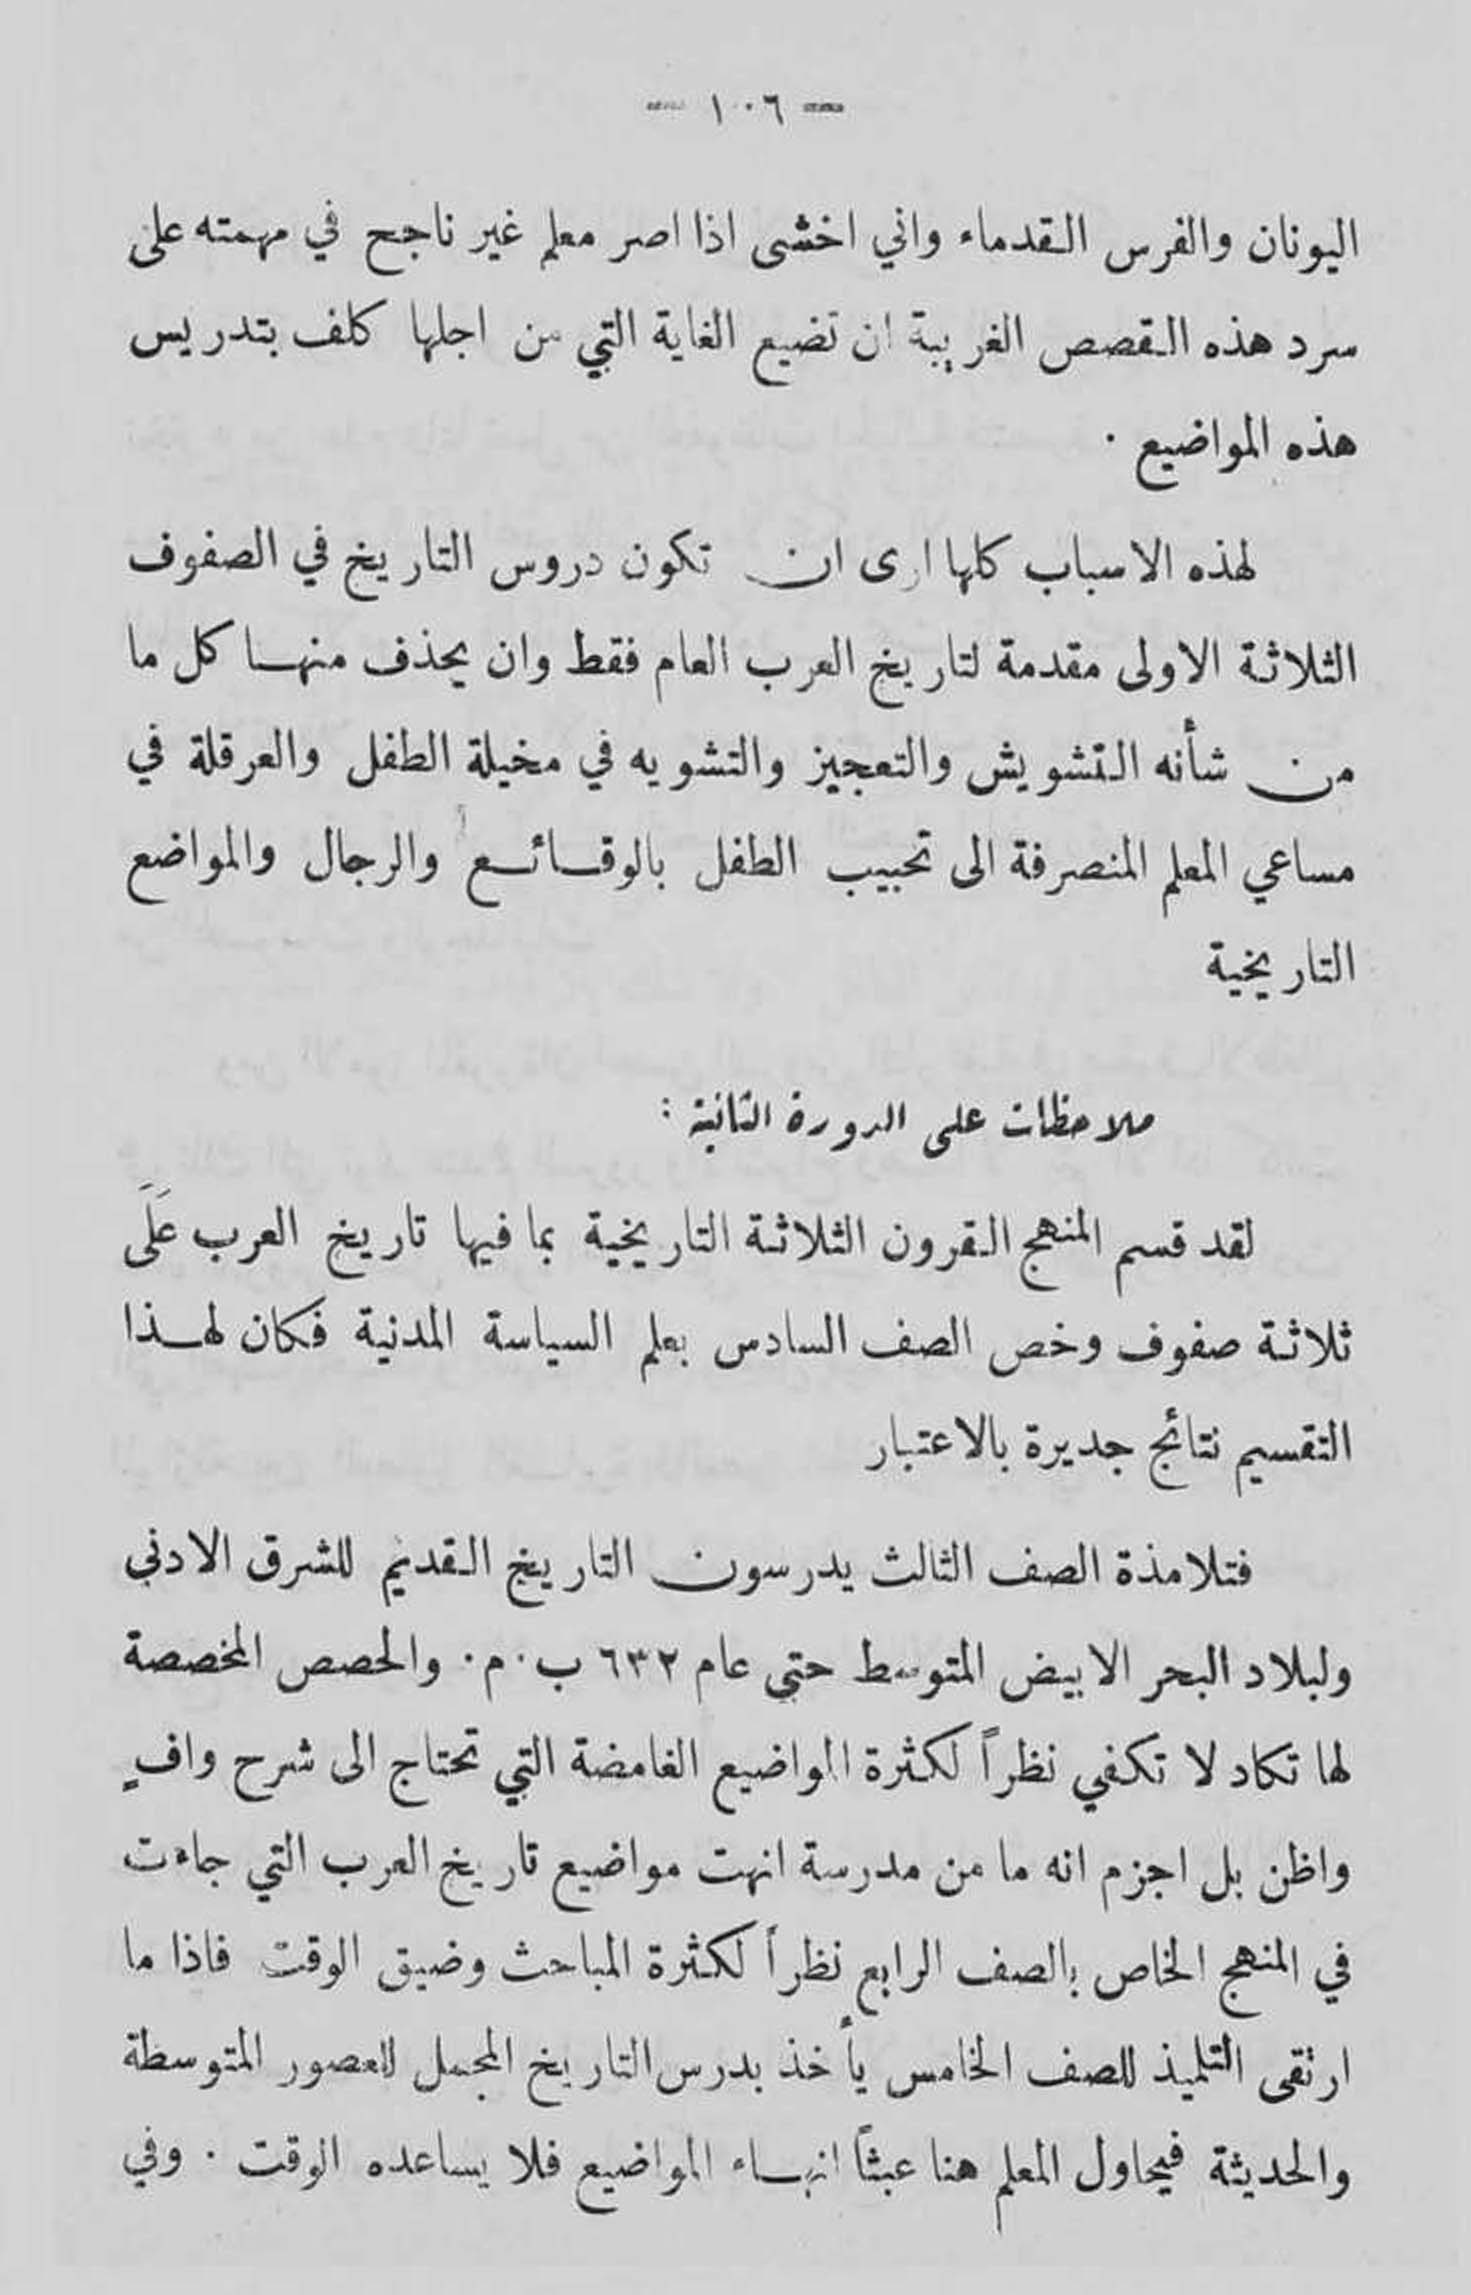 — ١٠٦ —
اليونان والفرس القدماء واني اخشى اذا اصر معلم غير ناجح في مهمته على
سرد هذه القصص الغريبة ان تضيع الغاية التي من اجلها كلف بتدريس
هذه المواضيع ٠
لهذه الاسباب كلها ارى ان تكون دروس التاريخ في الصفوف
الثلاثة الاولى مقدمة لتاريخ العرب العام فقط وان يحذف منها كل ما
من شأنه التشويش والتعجيز والتشويه في مخيلة الطفل والعرقلة في
مساعي المعلم المنصرفة الى تحبيب الطفل بالوقائع والرجال والمواضع
التاريخية
ملاحظات على الدورة الثانية :
لقد قسم المنهج القرون الثلاثة التاريخية بما فيها تاريخ العرب عَلَى
ثلاثة صفوف وخص الصف السادس بعلم السياسة المدنية فكان لهذا
التقسيم نتائج جديرة بالاعتبار
فتلامذة الصف الثالث يدرسون التاريخ القديم للشرق الادنى
ولبلاد البحر الابيض المتوسط حتى عام ٦٣٢ ب ٠ م ٠ والحصص المخصصة
لها تكاد لا تكفي نظراً لكثرة المواضيع الغامضة التي تحتاج الى شرح وافٍ
واظن بل اجزم انه ما من مدرسة انهت مواضيع تاريخ العرب التي جاءت
في المنهج الخاص بالصف الرابع نظراً لكثرة المباحث وضيق الوقت فاذا ما
ارتقى التلميذ للصف الخامس يأخذ بدرس التاريخ المجمل للعصور المتوسطة
والحديثة فيحاول المعلم هنا عبثاً انهاء المواضيع فلا يساعده الوقت ٠ وفي